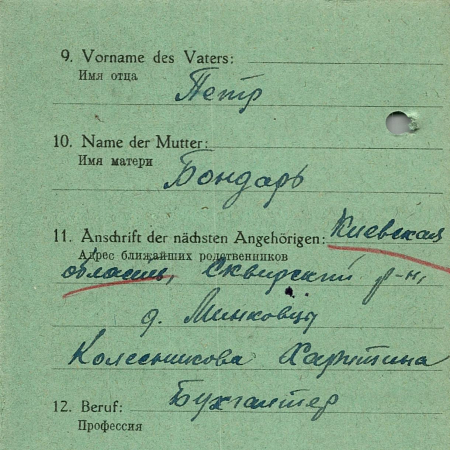 9. Vorname des Vaters:
Имя отца
Петр
10. Name der Mutter:
Имя матери
Бондарь
11. Anschrift der nächsten Angehörigen: Киевская
Адрес ближайших родственников
область, Сквирский р-н,
д. Минковцы
Колесникова Харитина
12. Beruf: Бухгалтер
Профессия